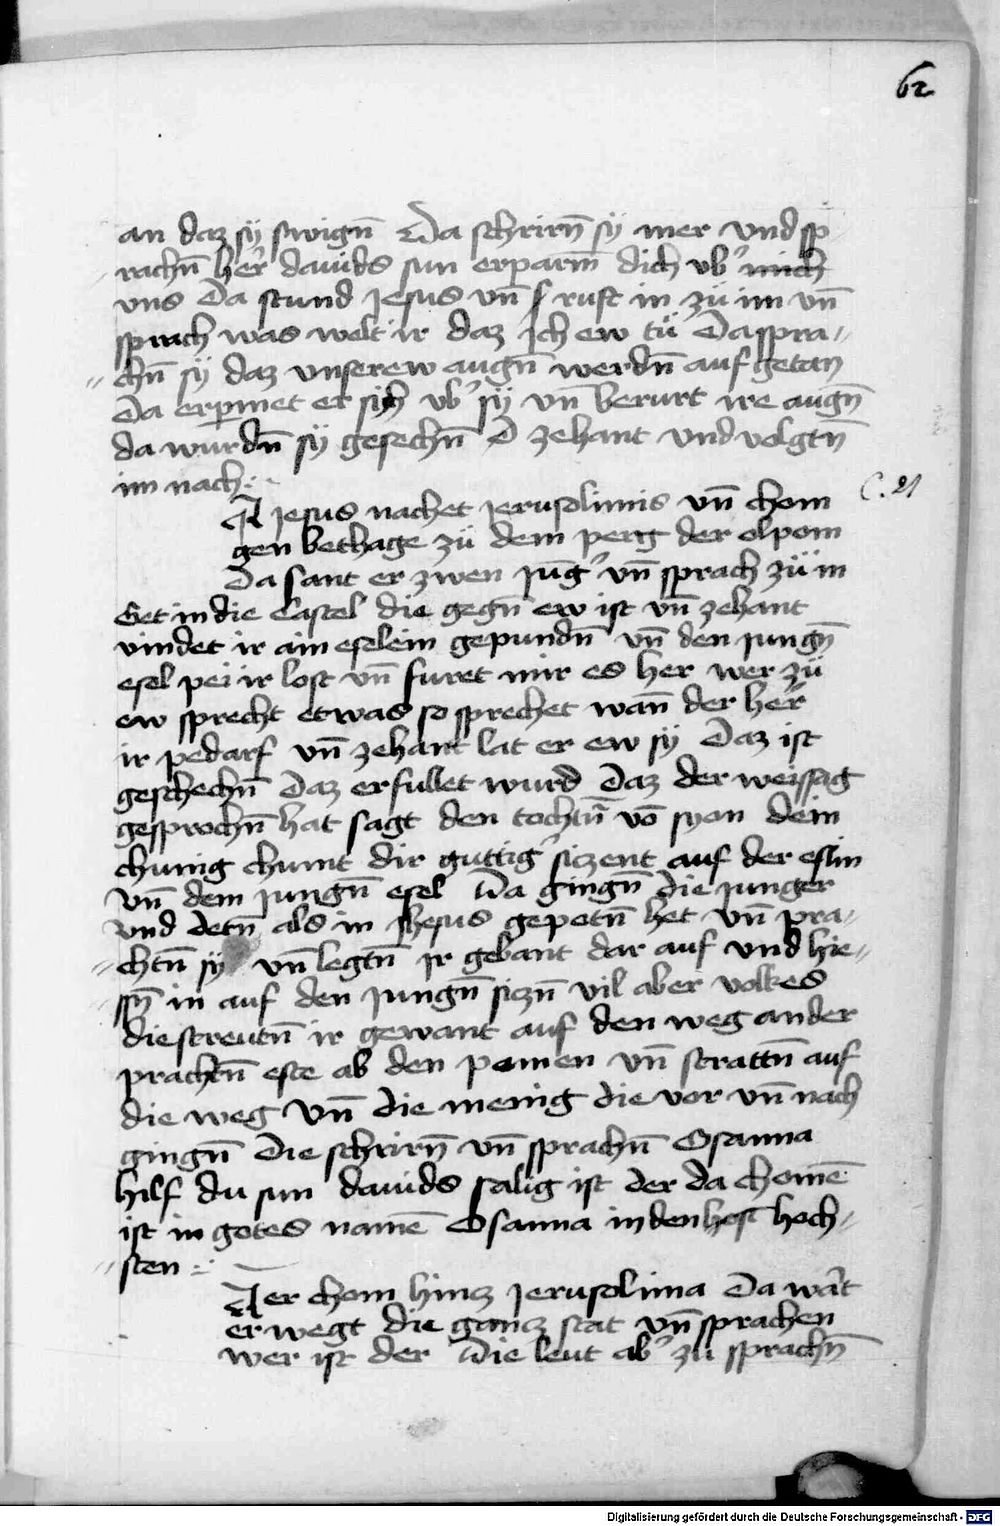 62
an daz sÿ swigñ Da schrirñ sÿ mer vnd sp
rachñ her dauids sun erparm̄ dich vb' mich
vns Da stund Jesus vn̄ ruft in zü im vn̄
sprach was welt ir daz ich ew tü Da spra-
chñ sÿ daz vnserew augñ werdñ auf getan
Da erpmet er sich vb' sÿ vn̄ berurt ire augñ
da wurdñ sÿ gesechñ zehant vnd volgtñ
im nach
C. 21
Jesus nachet jerusolimis vn̄ chom
gen bethage zü dem perg der olpom
Da sant er zwen jūg' vn̄ sprach zü in
Get in die Castel die gegñ ew ist vn̄ zehant
vindet ir ain eselein gepundñ vn̄ den jungñ
esel pei ir lost vn̄ furet mir es her wer zü
ew sprecht etwas so sprechet wañ der her
ir pedarf vn̄ zehant lat er ew sy Daz ist
geschechñ Daz erfullet wurd Daz der weissag
gesprochñ hat sagt den tochtñ vō syon dein
chunig chumt dir guttig' siczent auf der eslin
vn̄ dem jungñ esel Da gingñ die junger
vnd detñ als in Jhesus gepetñ het vn̄ pra-
chtñ sÿ vn̄ legtñ ir gebant dar auf vnd hie-
ssñ in auf den jungñ siczñ vil aber volkes
die streutñ ir gewant auf den weg ander
prachtñ este ab den pamen vn̄ strattñ auf
die weg vn̄ die menig die vor vn̄ nach
gingñ Die schrirñ vn̄ sprachñ Osanna
hilf du sun dauids salig ist der da chomē
ist in gotes namē Osanna in den host hoch-
sten
er chom hincz Jerusolima Da wart
erwegt die gancz stat vn̄ sprachen
wer ist der Die leut ab' zu sprachñ
Digitalisierung gefördert durch die Deutsche Forschungsgemeinschaft - DFG